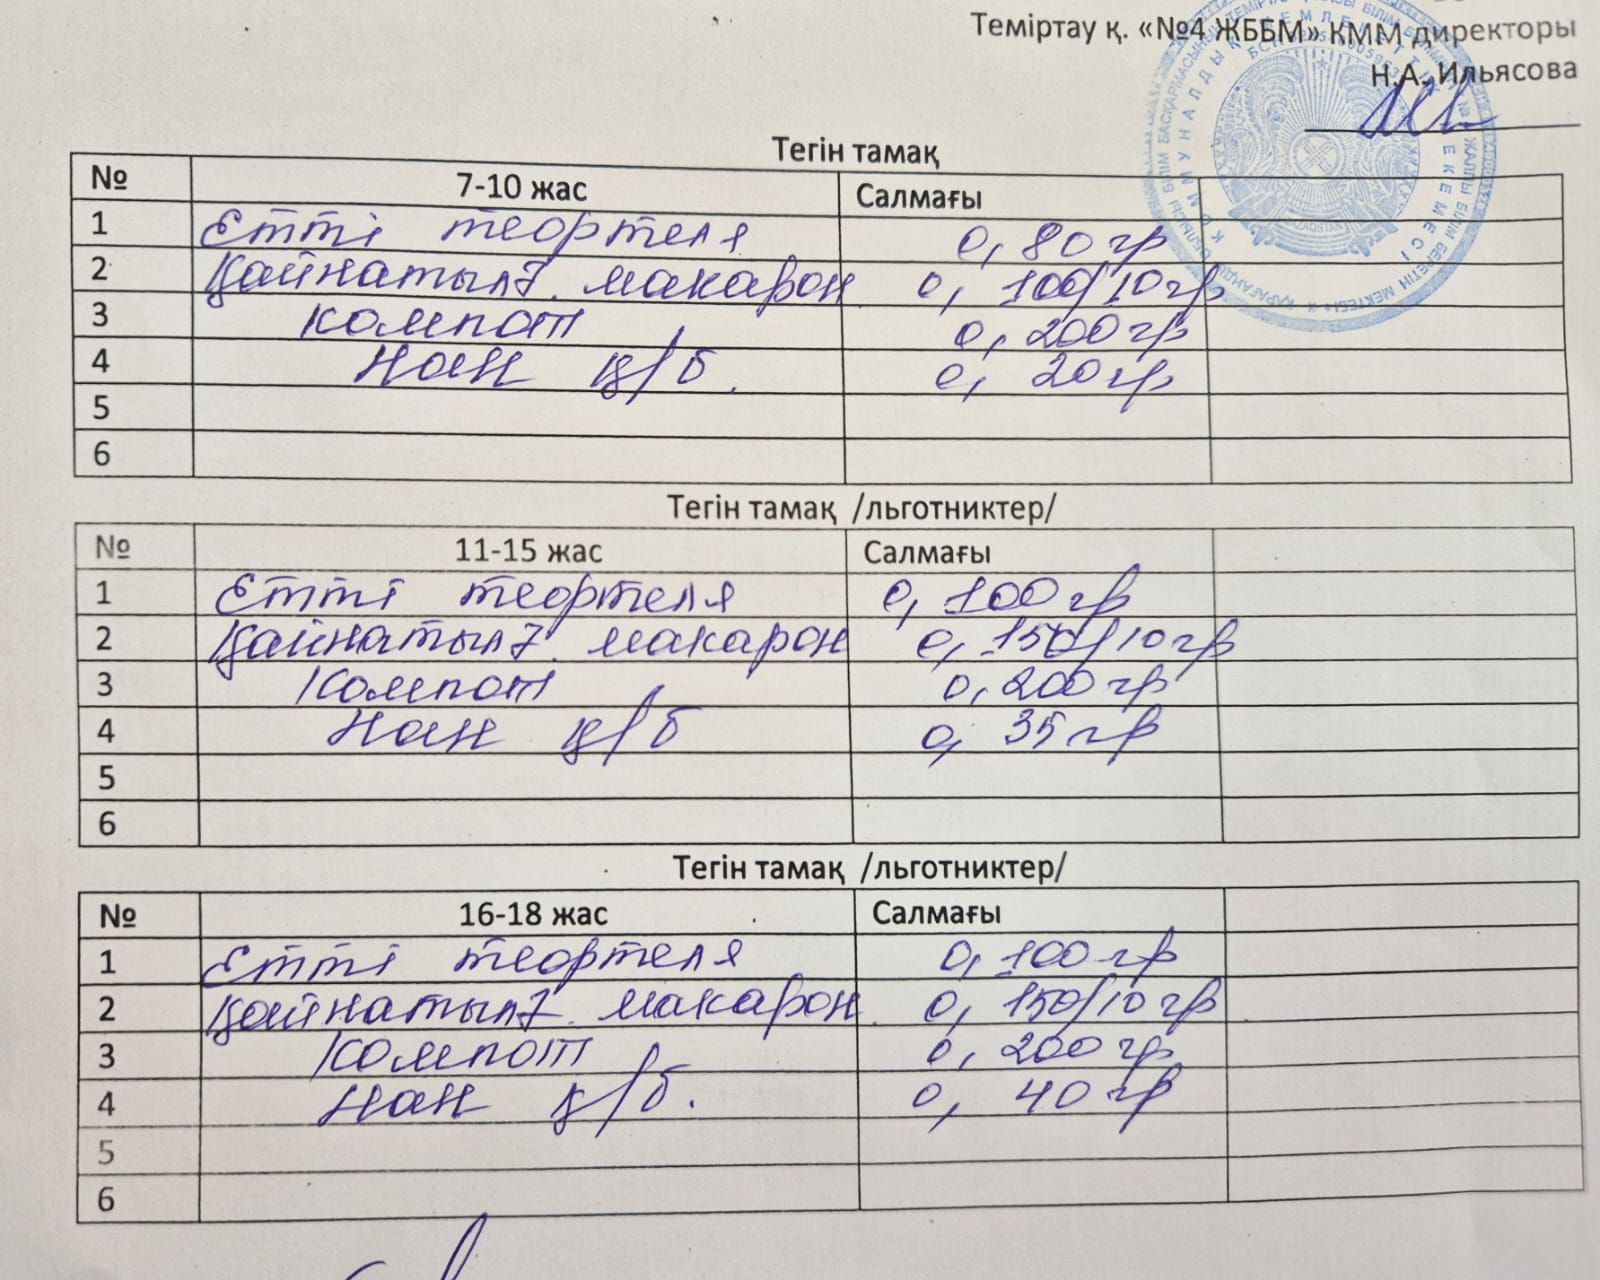 Теміртау қ. «№4 ЖББМ» КММ директоры
Н.А. Ильясова
Тегін тамақ
№ 7-10 жас Салмағы
1 Етті тефтеля 0, 80 гр
2 Қайнатылғ. макарон 0, 100/10 гр
3 компот 0, 200 гр
4 нан қ/б. 0, 20 гр
5
6
Тегін тамақ /льготниктер/
№ 11-15 жас Салмағы
1 Етті тефтеля 0, 100 гр
2 Қайнатылғ. макарон 0, 150/10 гр
3 Компот 0, 200 гр
4 нан қ/б 0, 35 гр
5
6
Тегін тамақ /льготниктер/
№ 16-18 жас Салмағы
1 Етті тефтеля 0, 100 гр
2 Қайнатылғ. макарон. 0, 150/10 гр
3 Компот 0, 200 гр
4 нан қ/б. 0, 40 гр
5
6